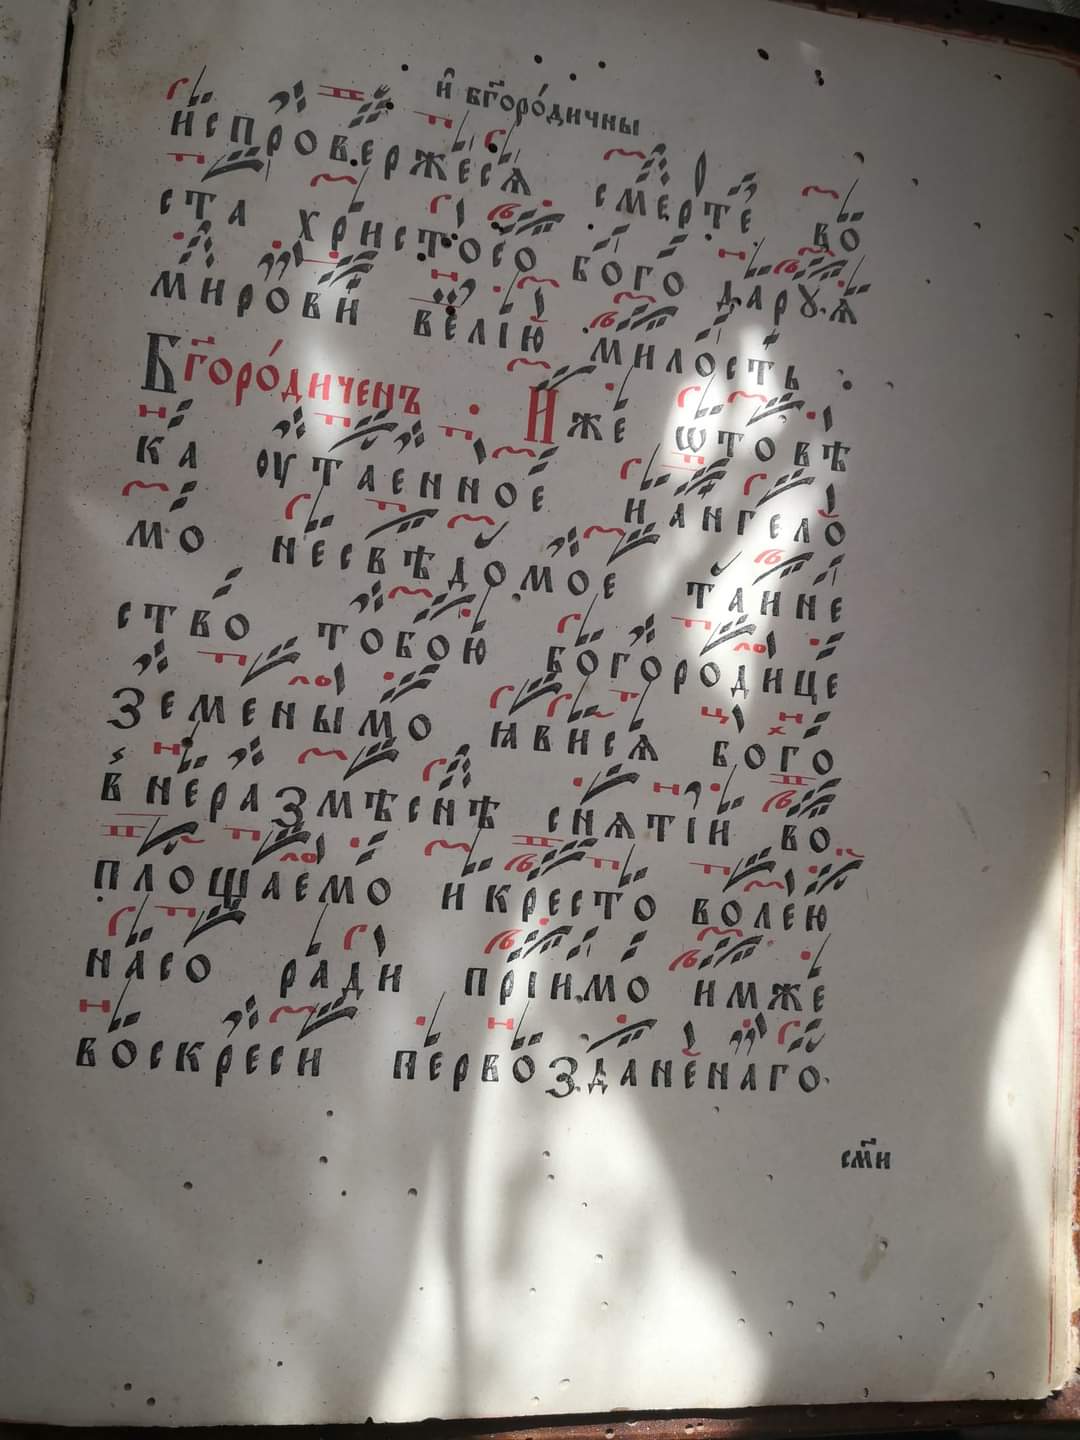 и҆ бг҃оро́дичны
испровержеся смерте во
ста христосо бого даруѧ
мирови велію милость
Бг҃оро́диченъ Иже ѿтовѣ
ка ѹтаенное и ангело
мо несвѣдомое таине
ство тобою богородице
земенымо ꙗвисѧ бого
в неразмѣснѣ снѧтіи во
площаемо и кресто волею
насо ради пріимо имже
воскреси первозданенаго
см҃и